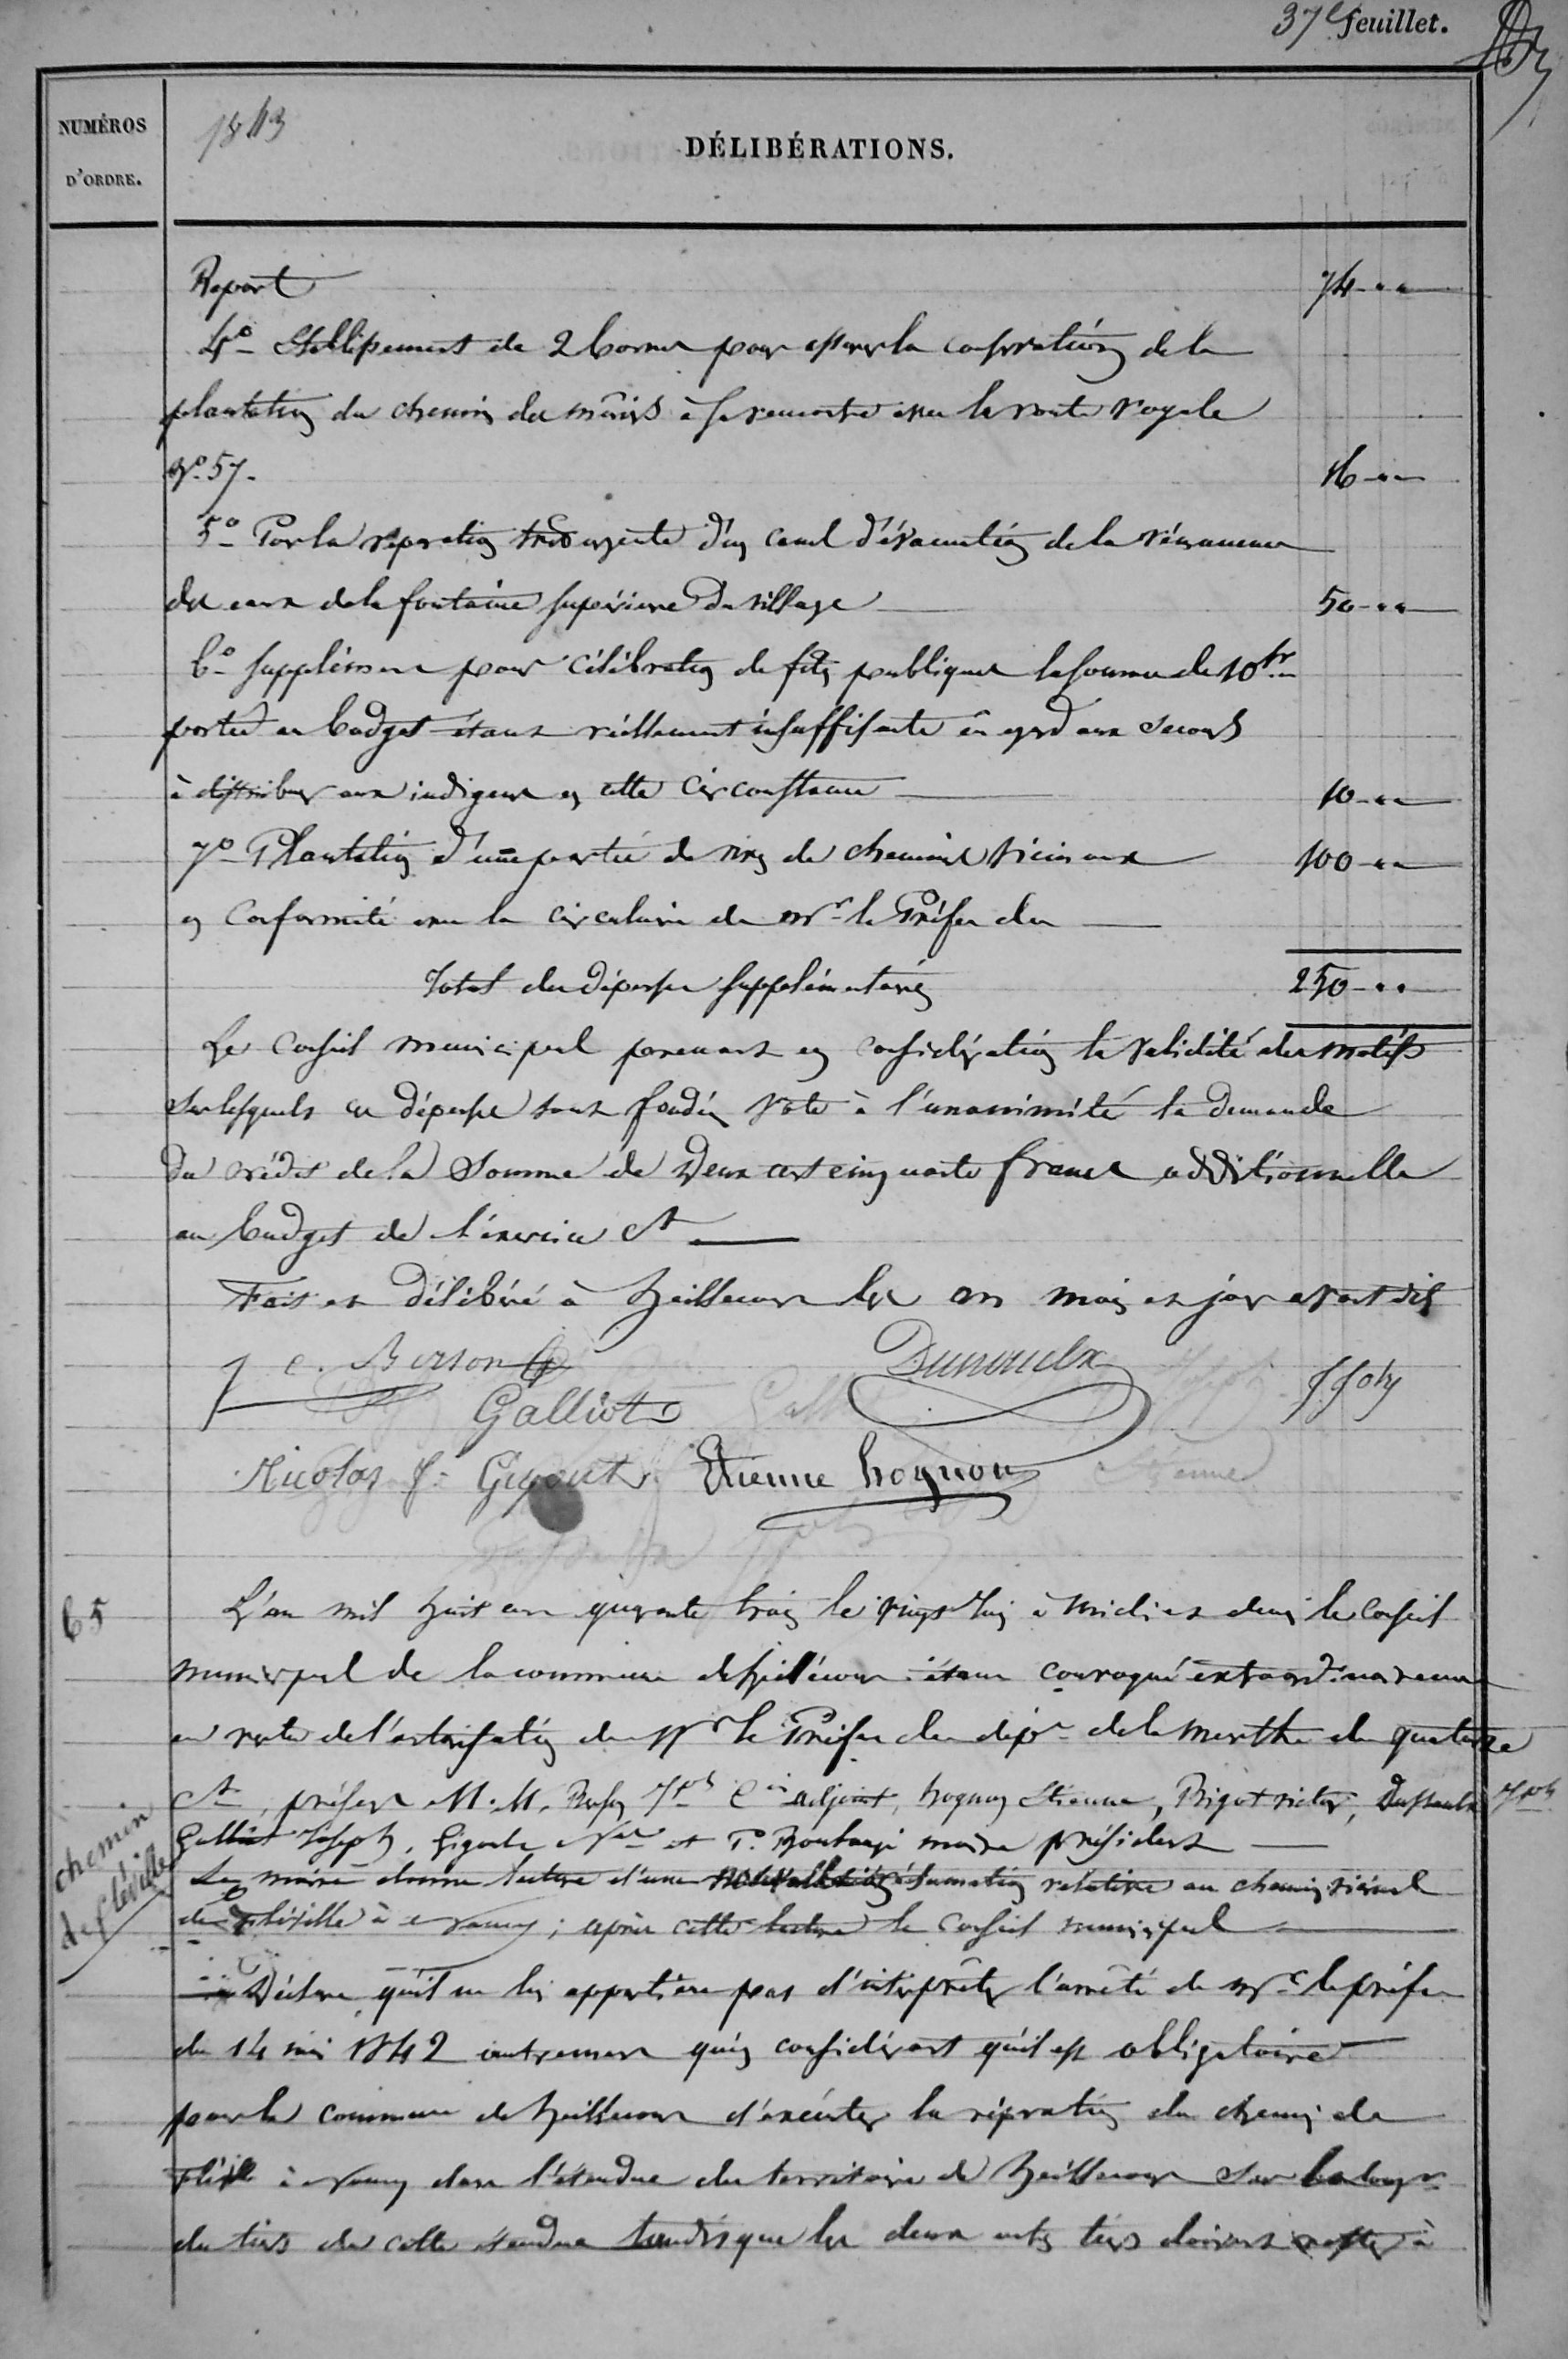 37e feuillet.
NUMÉROS
D'ORDRE.
1843
DÉLIBÉRATIONS.
Report 74 - " "
4° Etablissement de 2 bornes pour assurer la conservation de la
plantation du chemin des mûriers à sa rencontre avec la route royale
N° 57. 16 - " "
5° Pour la réparation très urgente d'un canal d'évacuation de la
des eaux de la fontaine supérieure du village 50 - " "
6° Supplément pour célébration de fêtes publiques la somme de 10 fr
portée au budget étant réellement insuffisante en égard aux secours
à distribuer aux indigens en cette circonstance 10 - " "
7° Plantation d'une partie de rives de chemins vicinaux 100 - " "
en conformité avec la circulaire de Mr le Préfet du
Total des dépenses supplémentaires 250 - " "
Le Conseil municipal prenant en considération la validité des motifs
sur lesquels ces dépenses sont fondées vote à l'unanimité la demande
du crédit de la Somme de Deux cent cinquante francs additionnelle
au budget de l'exercice Ct
Fait et Délibéré à heillecourt les an mois et jour avant dits
J C. Berson
Dumoulx
J Joly
Galliot
Nicolas f. Gigout
Etienne hognon
65
L'an mil huit cent quarante trois le vingt Juin à midi et demi le Conseil
municipal de la commune de heillécourt étant convoqué extraordinairement
en vertu de l'autorisation de Mr le Préfet du dépt de la Meurthe du quatorze
Ct, présens M.M. Jph adjoint, hognon Etienne, Bigot victor, Jph
Galliot Joseph, Gigout Nas et P. Boulangé maire président
chemin
de fléville
Le maire donne lecture d'une réclamation relative au chemin vicinal
de fléville à Nancy; après cette lecture le Conseil municipal
Déclare qu'il ne lui appartient pas d'interprêter l'arrêté de Mr le préfet
du 14 mai 1842 autrement qu'en considérant qu'il est obligatoire
pour la commune de heillecourt d'exécuter la réparation du chemin de
fléville à Nancy dans l'étendue du territoire de heillecourt sur la longr
du tiers de cette étendue tandis que les deux autres tiers doivent rester à